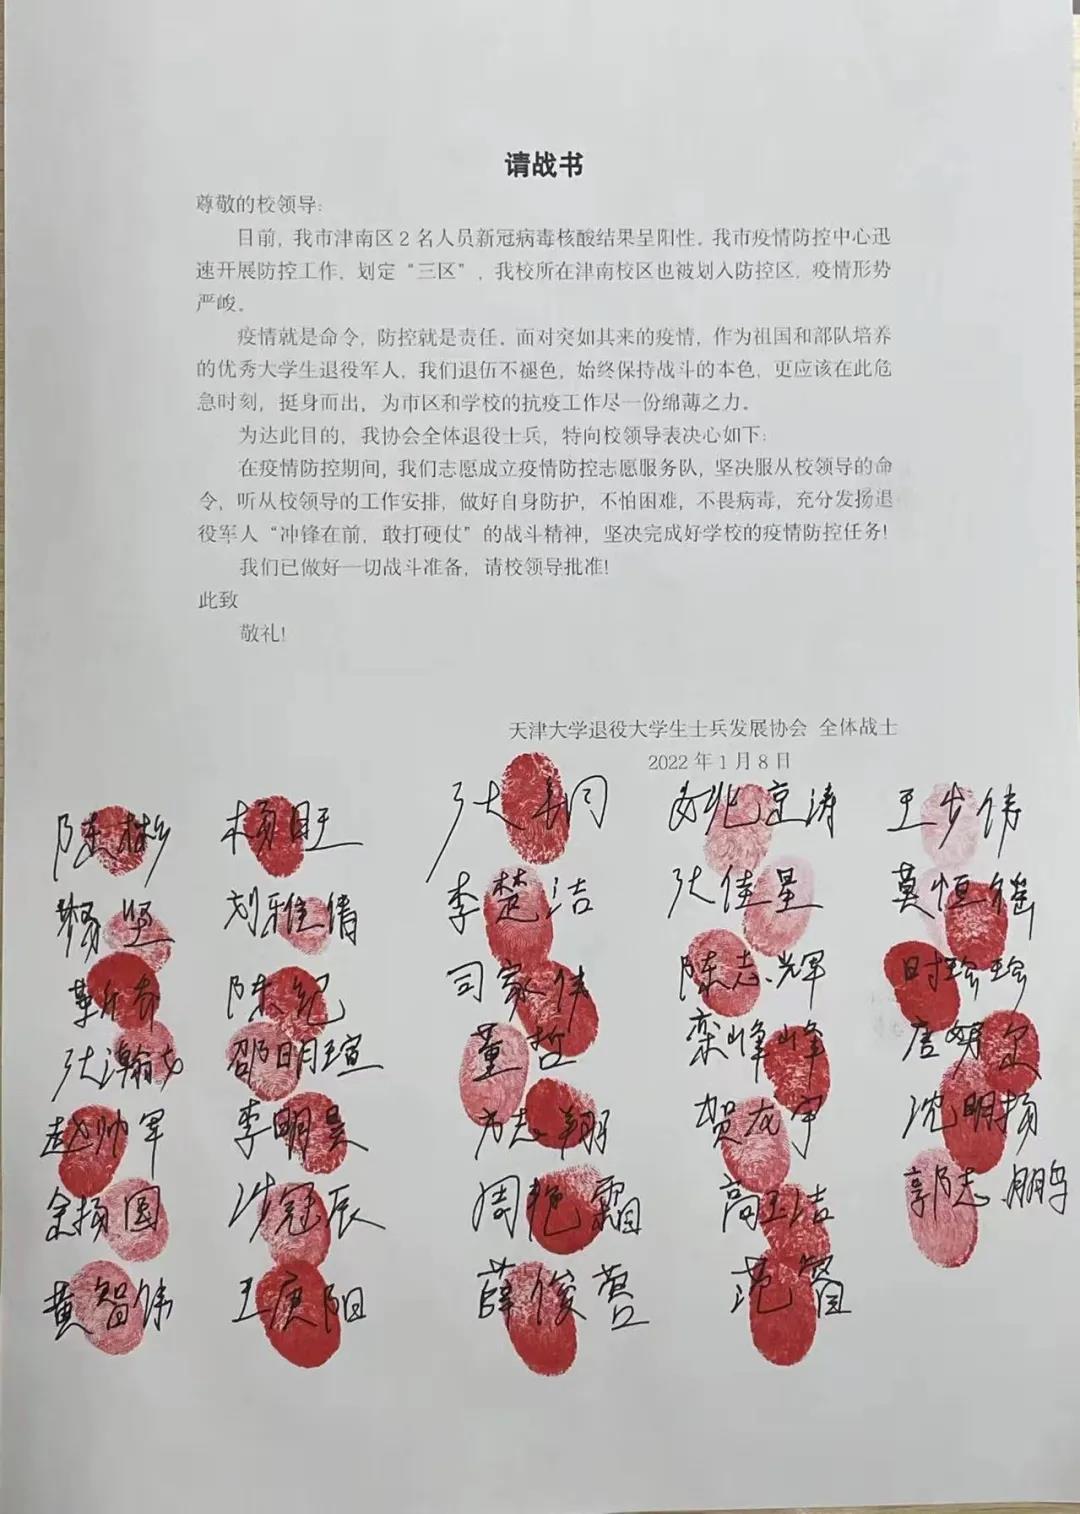 请战书
尊敬的校领导:
目前,我市津南区2名人员新冠病毒核酸结果呈阳性。我市疫情防控中心迅
速开展防控工作、划定“三区”,我校所在津南校区也被划入防控区,疫情形势
严峻。
疫情就是命令,防控就是责任。面对突如其来的疫情,作为祖国和部队培养
的优秀大学生退役军人,我们退伍不褪色,始终保持战斗的本色,更应该在此危
急时刻,挺身而出,为市区和学校的抗疫工作尽一份绵薄之力。
为达此目的,我协会全体退役士兵,特向校领导表决心如下:
在疫情防控期间,我们志愿成立疫情防控志愿服务队,坚决服从校领导的命
令,听从校领导的工作安排,做好自身防护,不怕困难,不畏病毒,充分发扬退
役军人“冲锋在前,敢打硬仗”的战斗精神,坚决完成好学校的疫情防控任务!
我们已做好一切战斗准备,请校领导批准!
此致
敬礼!
天津大学退役大学生士兵发展协会 全体战士
2022年1月8日
陈彬 杨旺 王步伟
杨坚 刘雅倩 李楚洁 张佳星 莫恒
陈纪 司家伟 陈志辉 时珍珍
邵明瑄 董哲 栾峰峰
赵帅军 李明昊 方志翔 贺龙宇 沈明扬
余扬圆 沙冠辰 周艳霜 高玉洁 郭志鹏
黄智伟 王庚阳 薛俊营 范